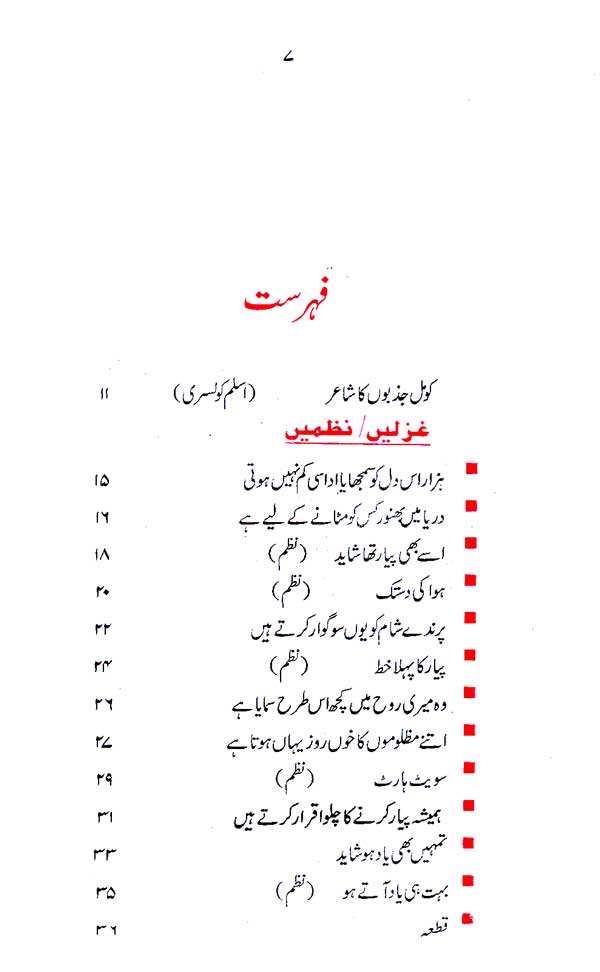 ۷
فہرست
کومل جذبوں کا شاعر (اسلم کولسری) ۱۱
غزلیں/نظمیں
ہزار اس دل کو سمجھایا اداسی کم نہیں ہوتی ۱۵
دریا میں بھنور کس کو مٹانے کے لیے ہے ۱۶
اسے بھی پیار تھا شاید (نظم) ۱۸
ہوا کی دستک (نظم) ۲۰
پرندے شام کو یوں سوگوار کرتے ہیں ۲۲
پیار کا پہلا خط (نظم) ۲۴
وہ میری روح میں کچھ اس طرح سمایا ہے ۲۶
اتنے مظلوموں کا خوں روز یہاں ہوتا ہے ۲۷
سویٹ ہارٹ (نظم) ۲۹
ہمیشہ پیار کرنے کا چلو اقرار کرتے ہیں ۳۱
تمہیں بھی یاد ہو شاید ۳۳
بہت ہی یاد آتے ہو (نظم) ۳۵
قطعہ ۳۶